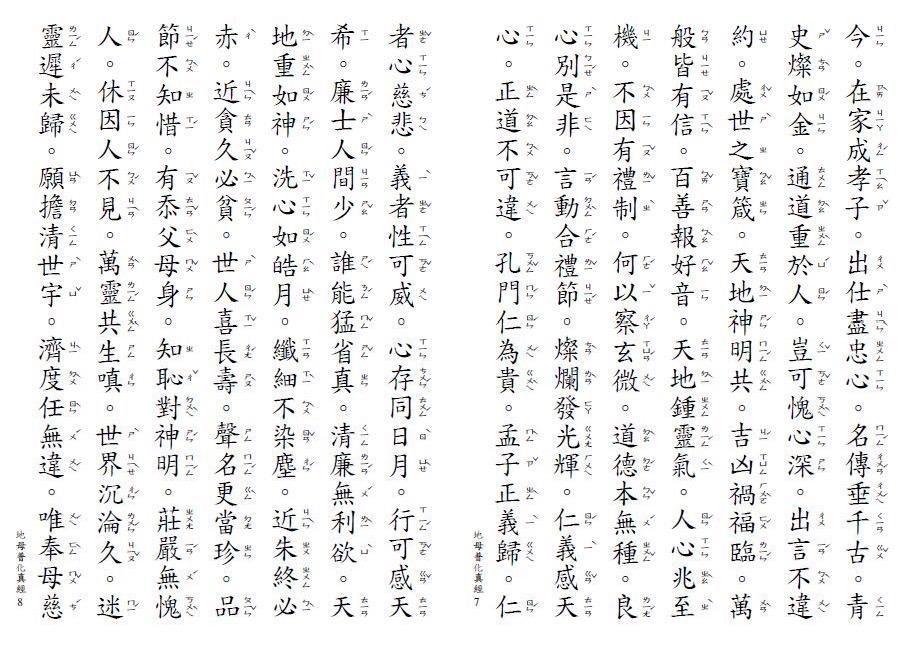 今。在家成孝子。出仕盡忠心。名傳垂千古。青
史燦如金。通道重於人。豈可愧心深。出言不違
約。處世之寶箴。天地神明共。吉凶禍福臨。萬
般皆有信。百善報好音。天地鍾靈氣。人心兆至
機。不因有禮制。何以察玄微。道德本無種。良
心別是非。言動合禮節。燦爛發光輝。仁義感天
心。正道不可違。孔門仁為貴。孟子正義歸。仁
地母普化真經 7
者心慈悲。義者性可威。心存同日月。行可感天
希。廉士人間少。誰能猛省真。清廉無利欲。天
地重如神。洗心如皓月。纖細不染塵。近朱終必
赤。近貪久必貧。世人喜長壽。聲名更當珍。品
節不知惜。有忝父母身。知恥對神明。莊嚴無愧
人。休因人不見。萬靈共生嗔。世界沉淪久。迷
靈遲未歸。願擔清世宇。濟度任無違。唯奉母慈
地母普化真經 8